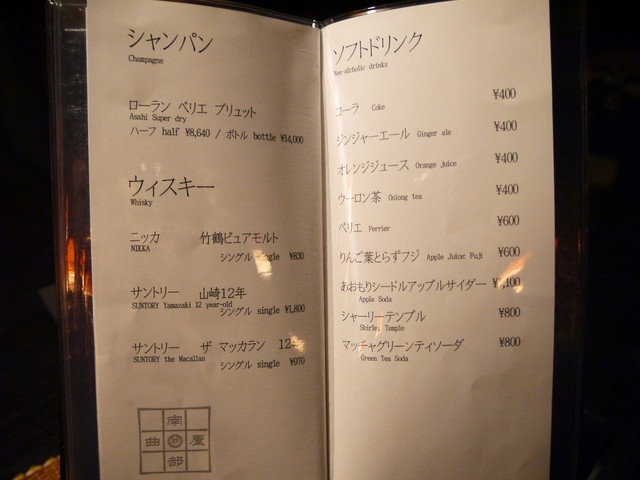 シャンパン
Champagne
ローラン ペリエ ブリュット
Asahi Super dry
ハーフ half ¥8,640 / ボトル bottle ¥14,000
ウィスキー
Whisky
ニッカ 竹鶴ピュアモルト
NIKKA
シングル single ¥830
サントリー 山崎12年
SUNTORY Yamazaki 12 year-old
シングル single ¥1,800
サントリー ザ マッカラン 12年
SUNTORY the Macallan
シングル single ¥970
南
曲 屋
部
ソフトドリンク
Non-alcholic drinks
コーラ Coke ¥400
ジンジャーエール Ginger ale ¥400
オレンジジュース Orange juice ¥400
ウーロン茶 Oolong tea ¥400
ペリエ Perrier ¥600
りんご葉とらずフジ Apple Juice: Fuji ¥600
あおもりシードルアップルサイダー
Apple Soda
シャーリーテンプル ¥800
Shirley Temple
マッチャグリーンティソーダ ¥800
Green Tea Soda